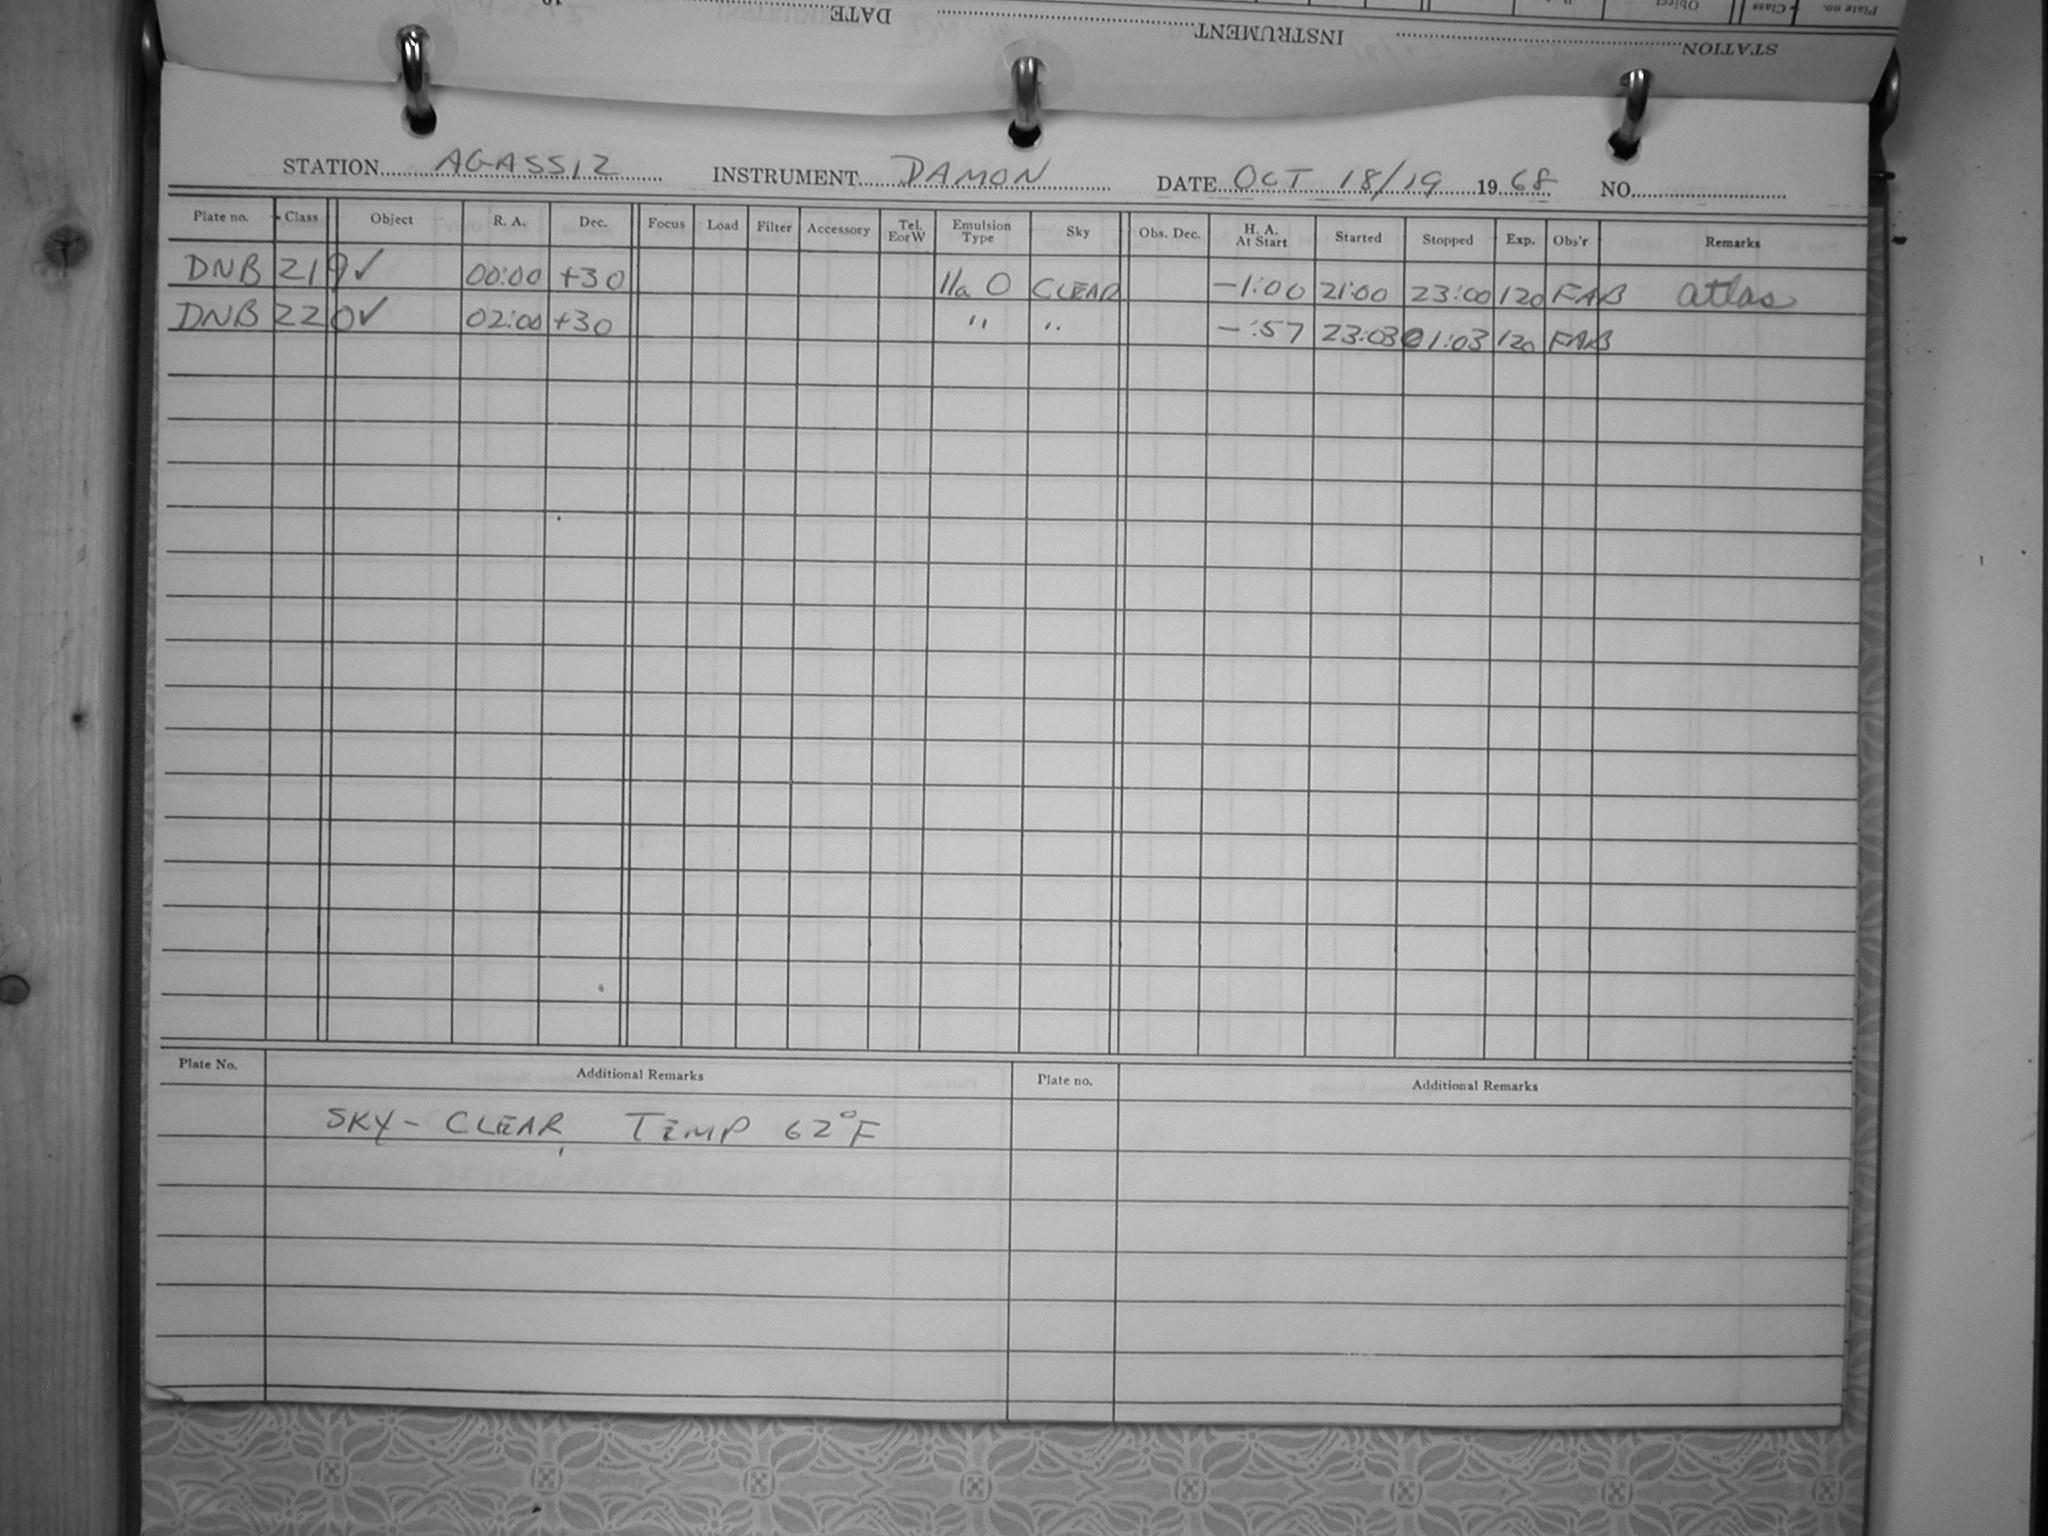 DATE INSTRUMENT STATION
Object Class Plate no.
STATION AGASSIZ INSTRUMENT DAMON DATE OCT 18/19 1968 NO.
Plate no. Class Object R. A. Dec. Focus Load Filter Accessory Tel. E or W Emulsion Type Sky Obs. Dec. H. A. At Start Started Stopped Exp. Obs'r Remarks
DNB 219 ✓ 00:00 +30 IIa O CLEAR -1:00 21:00 23:00 120 FAB atlas
DNB 220 ✓ 02:00 +30 " " -:57 23:03 01:03 120 FAB
Plate No. Additional Remarks Plate no. Additional Remarks
SKY - CLEAR, TEMP 62°F